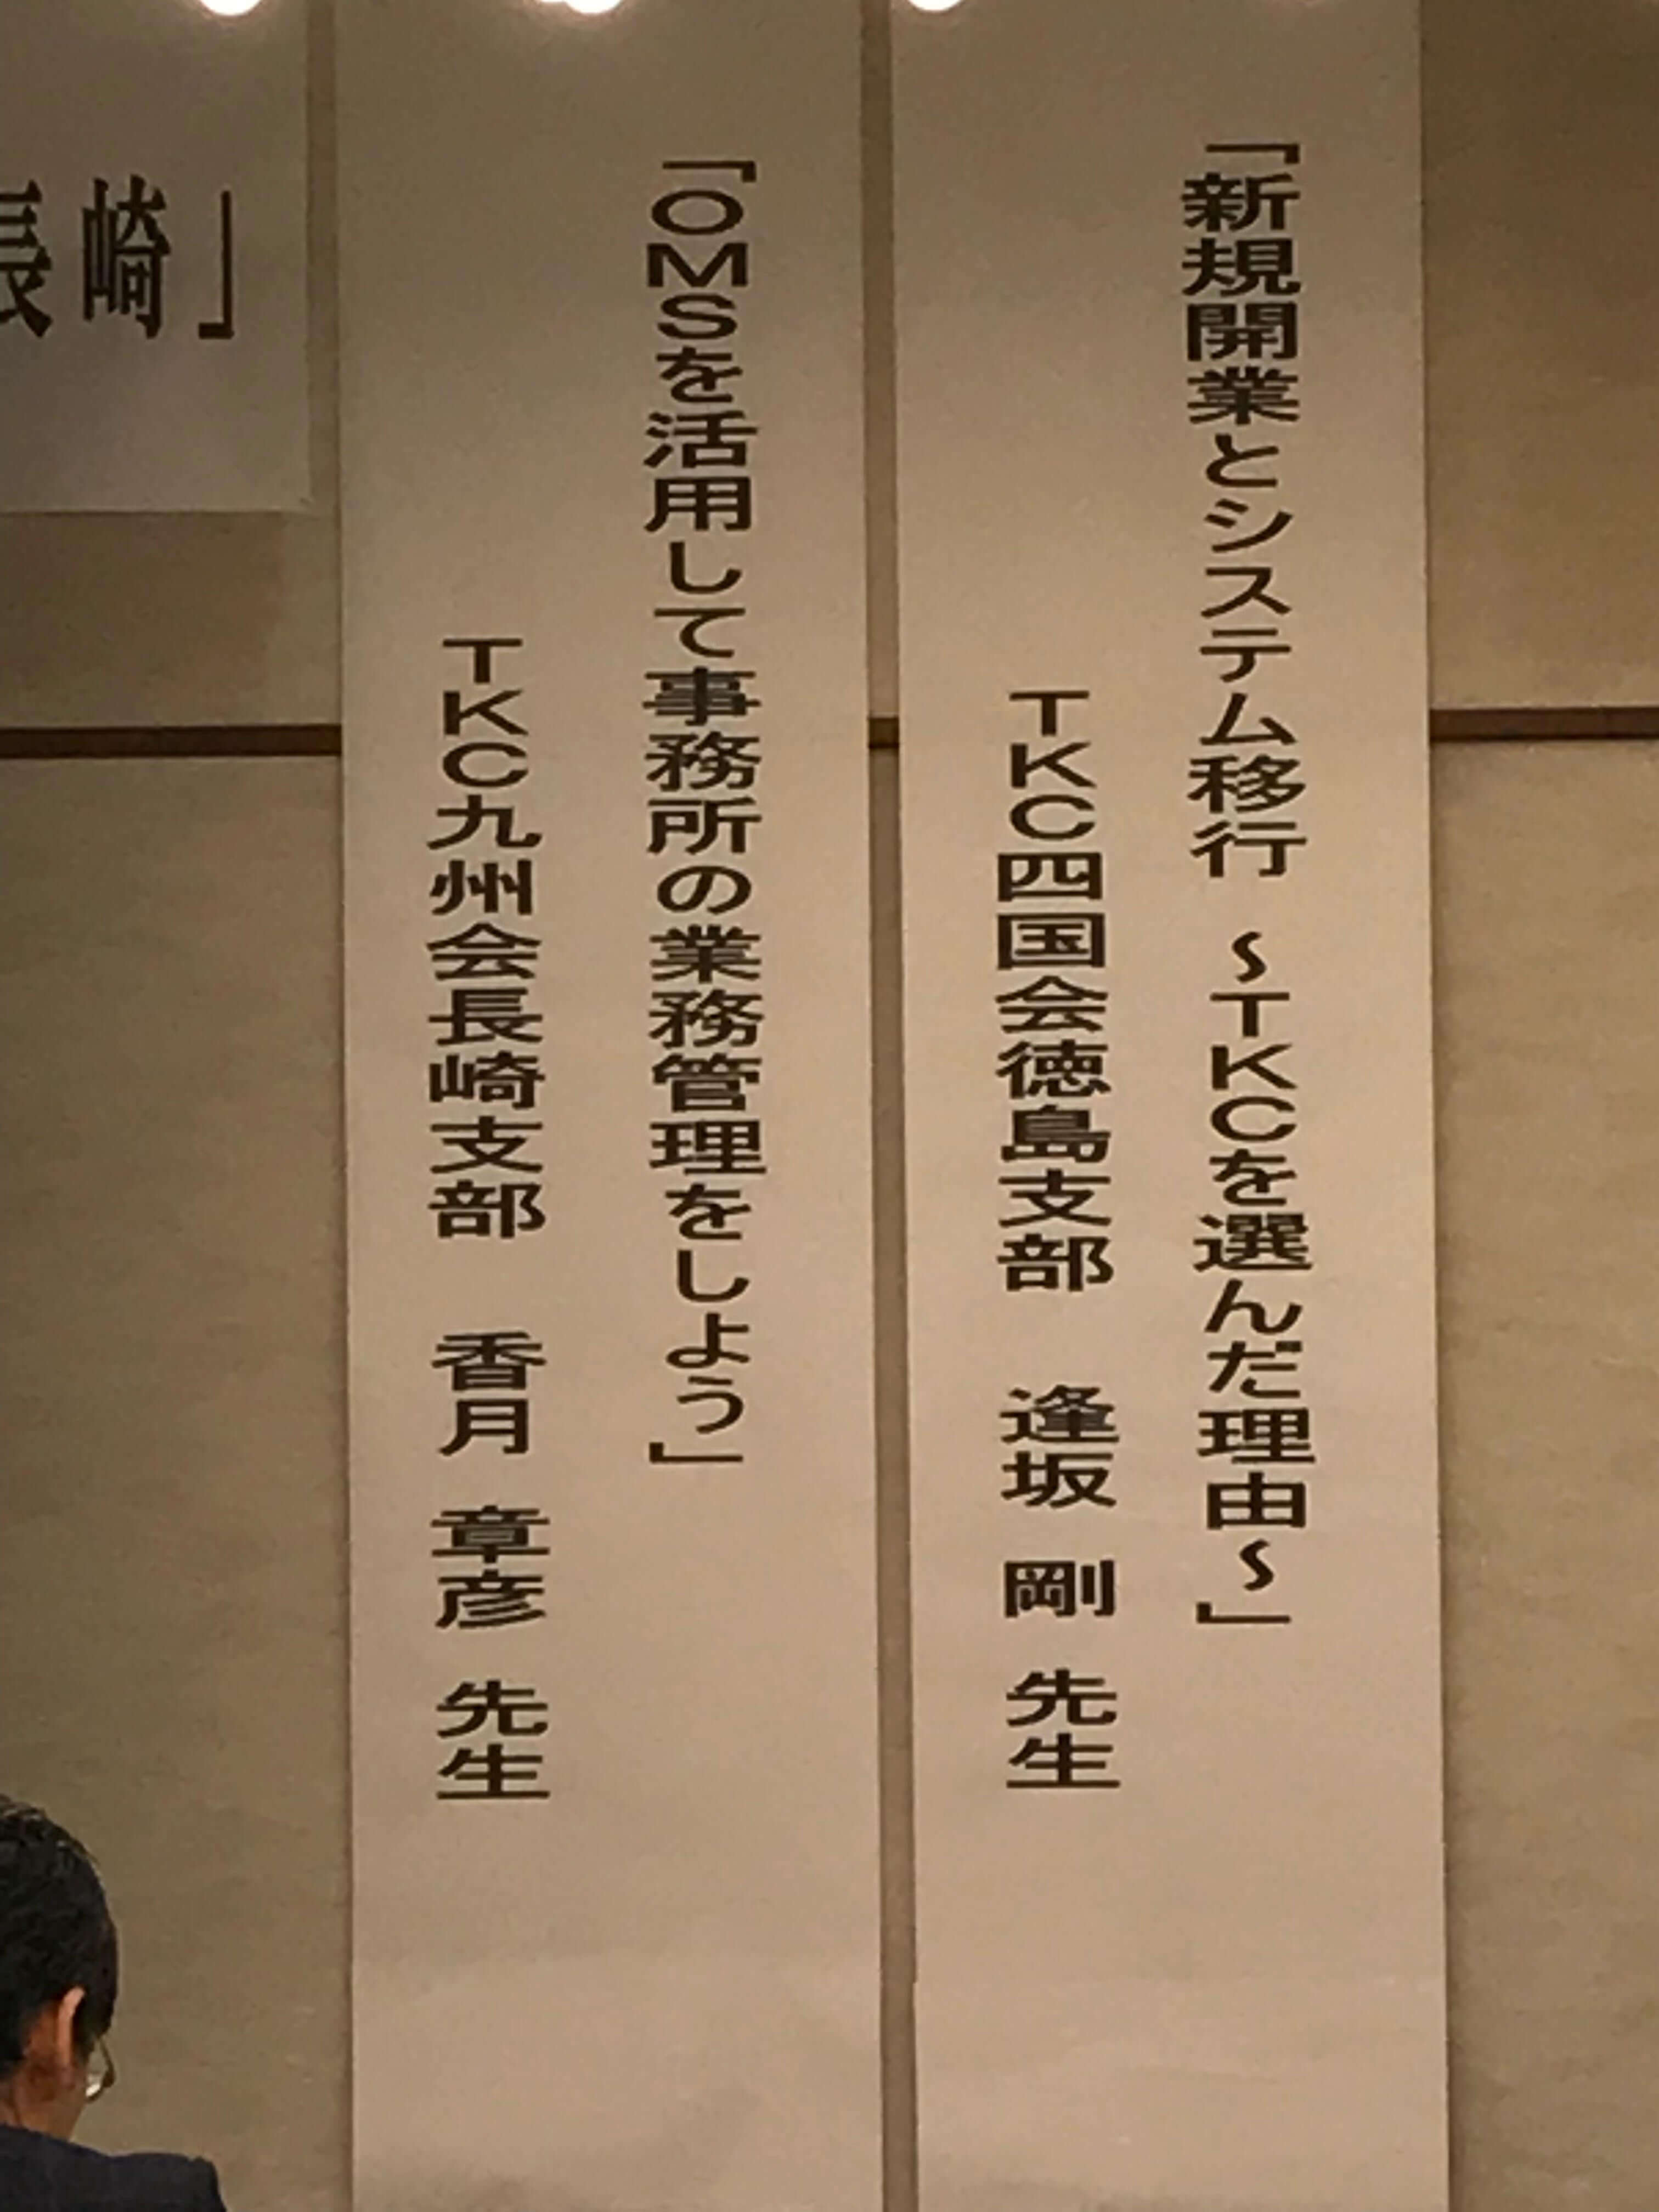 「新規開業とシステム移行 ～TKCを選んだ理由～」
TKC四国会徳島支部 逢坂 剛 先生
「OMSを活用して事務所の業務管理をしよう」
TKC九州会長崎支部 香月 章彦 先生
長崎」